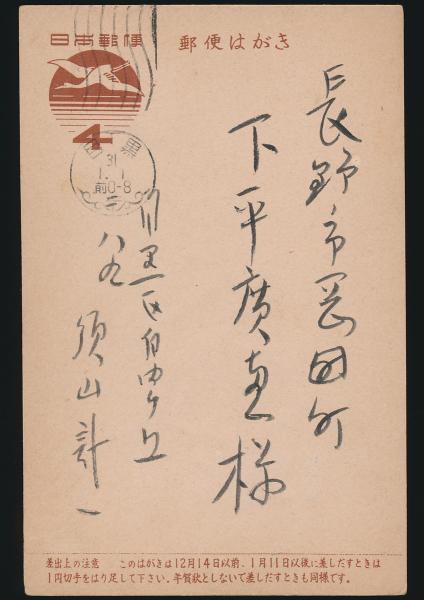 日本郵便
郵便はがき
4
目黒
31
1.1
前0-8
長野市岡田町
下平廣惠様
目黒区自由ヶ丘
八九
須山計一
差出上の注意 このはがきは12月14日以前、1月11日以後に差しだすときは
1円切手をはり足して下さい。年賀状としないで差しだすときも同様です。